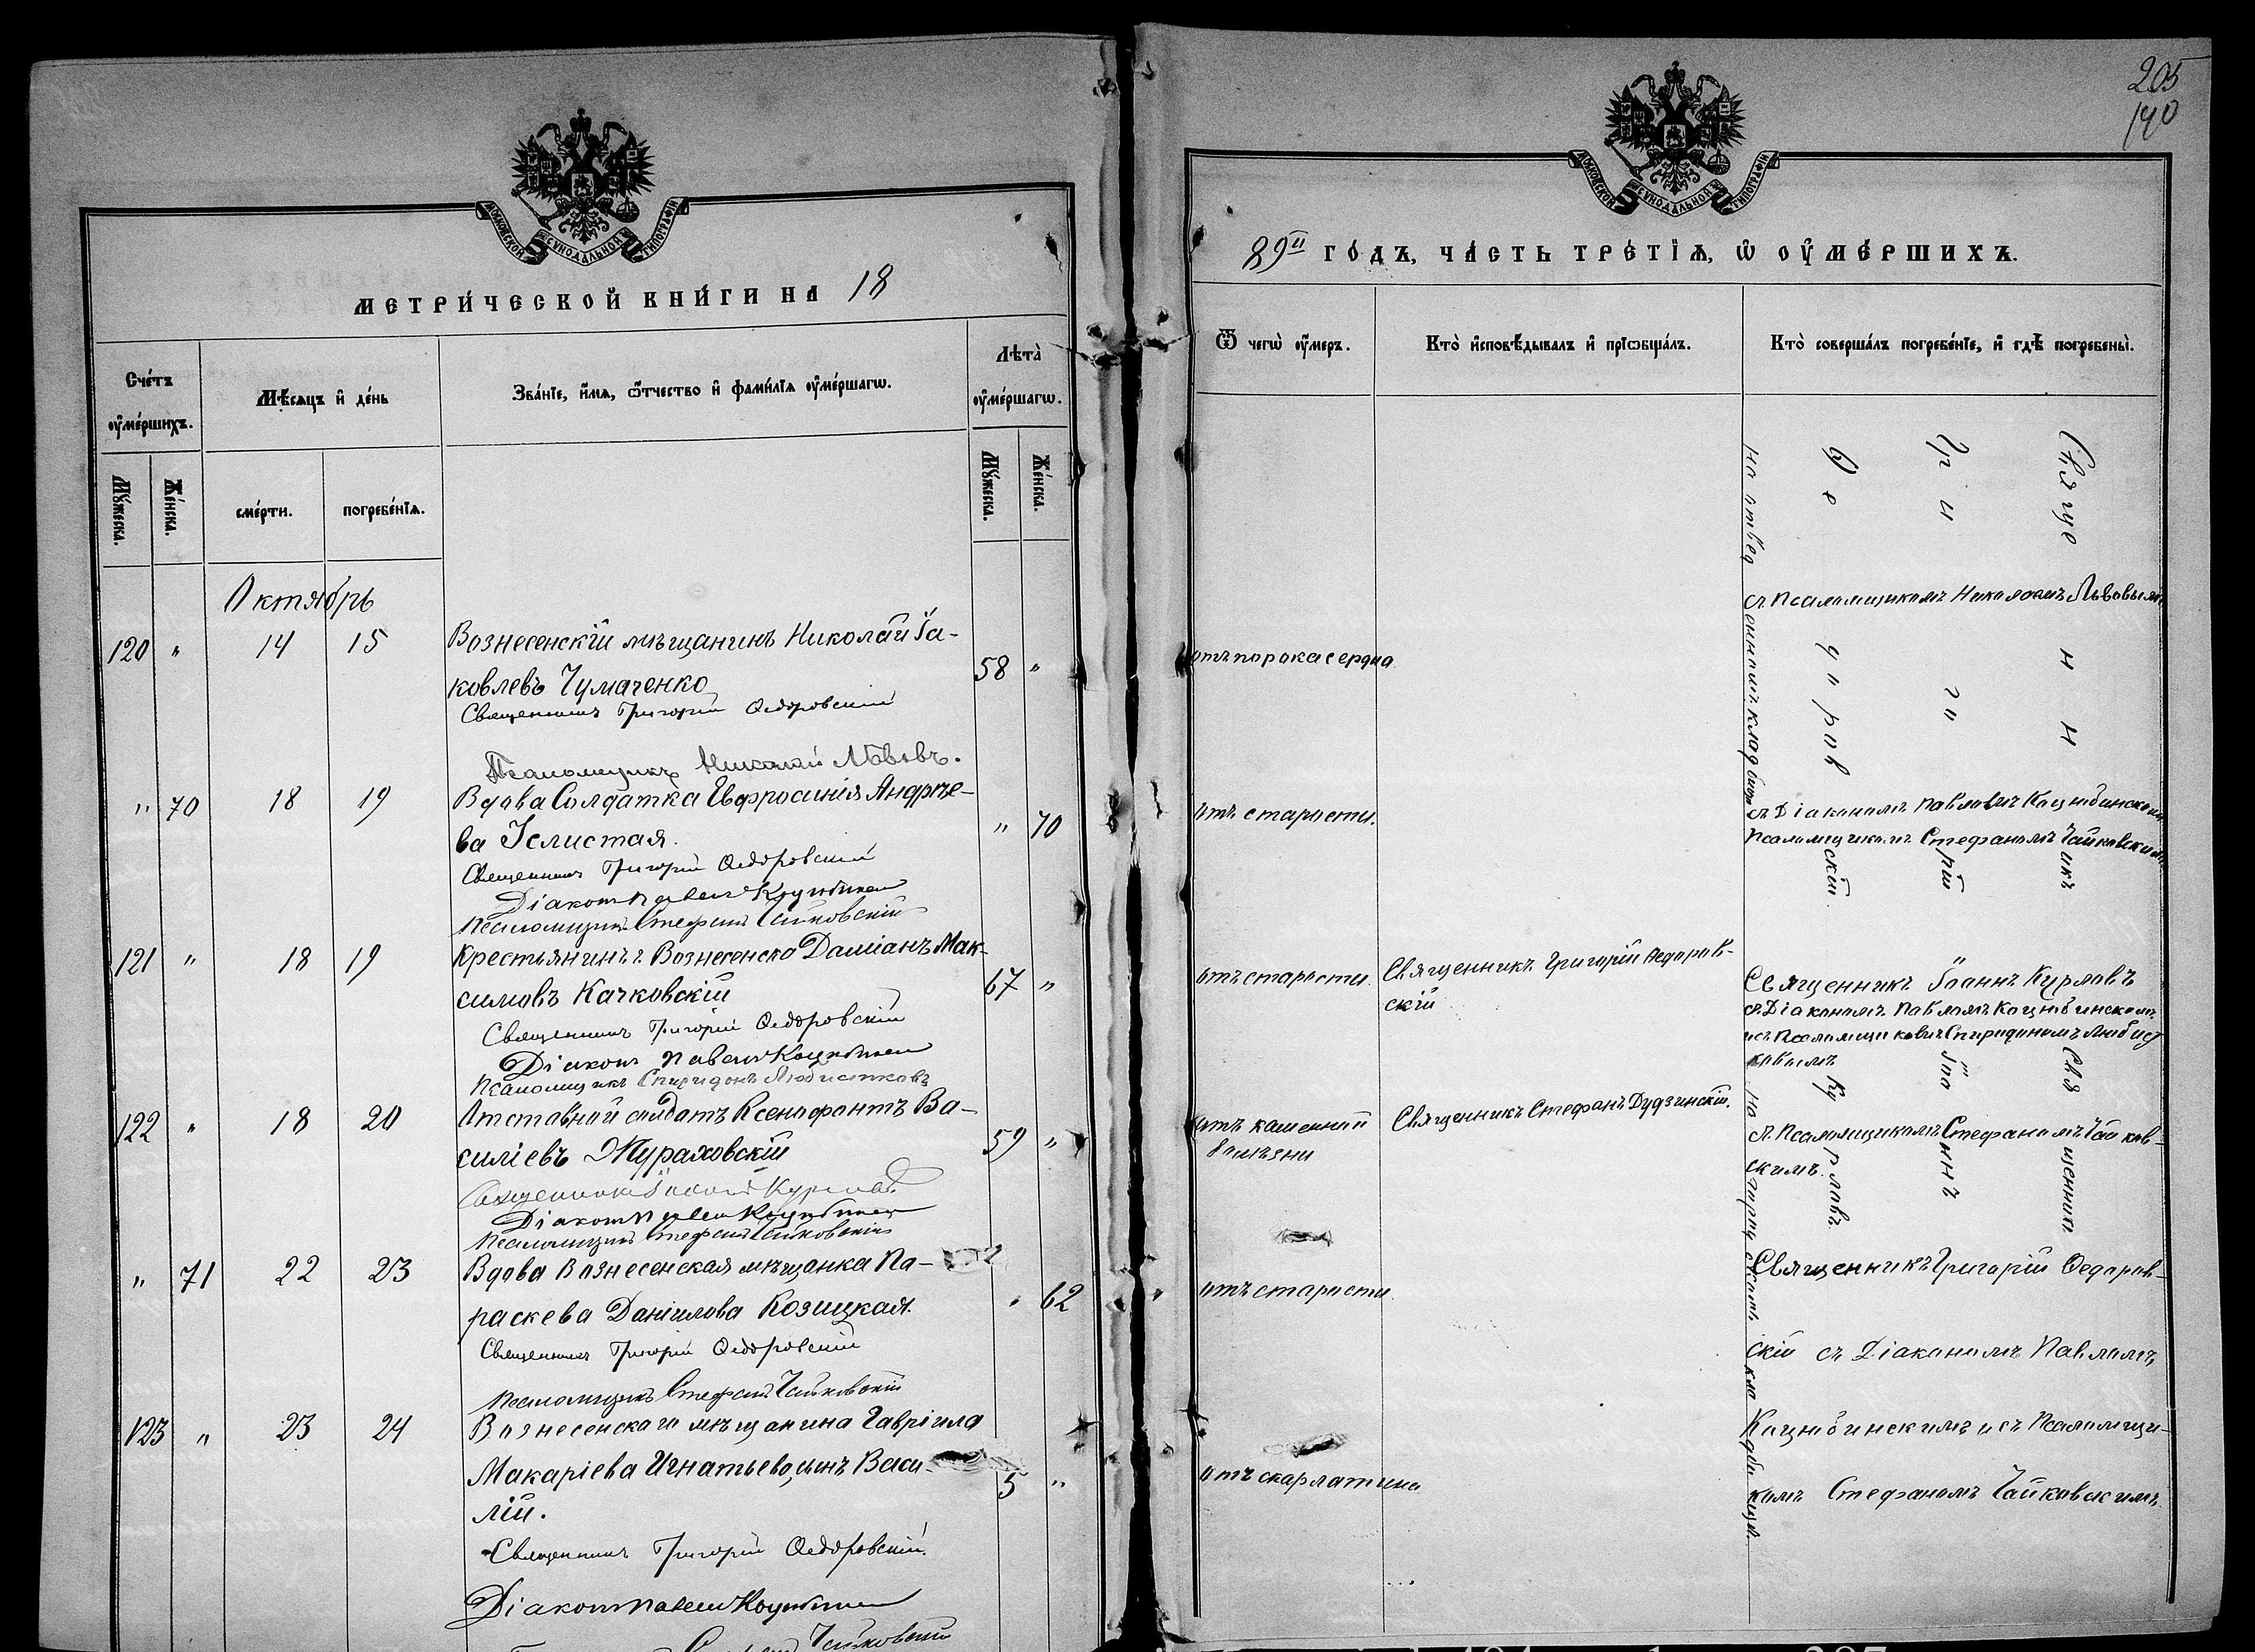 МОСКОВСКОЙ СѴНОДАЛЬНОЙ ТИПОГРАФІИ
МЕТРИ́ЧЕСКОЙ КНИ́ГИ НА 18
Сче́тъ ᲂу҆ме́ршихъ.
Мѣ́сяцъ и҆ де́нь
Зва́нїе, и҆́мя, ѻ҆́тчество и҆ фами́лїя ᲂу҆ме́ршагѡ.
Лѣта̀ ᲂу҆ме́ршагѡ.
Мꙋ́жеска.
Же́нска.
сме́рти.
погребе́нїѧ.
Мꙋ́жеска.
Же́нска.
Октябрь
120 " 14 15 Вознесенскій мѣщанинъ Николай Іа-
ковлевъ Чумаченко 58 "
Священникъ Григорій Ѳедоровскій
Псаломщикъ Николай Львовъ.
" 70 18 19 Вдова Солдатка Евфросинія Андрѣе-
ва Услистая. " 70
Священникъ Григорій Ѳедоровскій
Діаконъ Павелъ Коцюбинскій
Псаломщикъ Стефанъ Чайковскій
121 " 18 19 Крестьянинъ г. Вознесенска Даміанъ Мак-
симовъ Качковскій 67 "
Священникъ Григорій Ѳедоровскій
Діаконъ Павелъ Коцюбинскій
Псаломщикъ Спиридонъ Любистковъ
122 " 18 20 Отставной солдатъ Ксенофонтъ Ва-
силіевъ Жураховскій 59 "
Священникъ Іоаннъ Курловъ
Діаконъ Павелъ Коцюбинскій
Псаломщикъ Стефанъ Чайковскій
" 71 22 23 Вдова Вознесенская мѣщанка Па-
раскева Даніилова Козицкая. " 62
Священникъ Григорій Ѳедоровскій
Псаломщикъ Стефанъ Чайковскій
123 " 23 24 Вознесенскаго мѣщанина Гавріила
Макаріева Игнатьева, сынъ Васи-
лій. 5 "
Священникъ Григорій Ѳедоровскій
Діаконъ Павелъ Коцюбинскій
Чайковскій
205
140
МОСКОВСКОЙ СѴНОДАЛЬНОЙ ТИПОГРАФІИ
89й ГО́ДЪ, ЧА́СТЬ ТРЕ́ТЇѦ, Ѡ҆ ОУ҆МЕ́РШИХЪ.
Ѿ чегѡ̀ ᲂу҆́меръ.
Кто̀ и҆сповѣ́дывалъ и҆ прїѡбща́лъ.
Кто̀ соверша́лъ погребе́нїе, и҆ гдѣ̀ погребены̀.
Священникъ
Григорій
Ѳедоровскій.
на отведенномъ кладбищѣ
съ Псаломщикомъ Николаемъ Львовымъ
отъ порока сердца
отъ старости.
съ Діакономъ Павломъ Коцюбинскимъ
Псаломщикомъ Стефаномъ Чайковскимъ
отъ старости. Священникъ Григорій Ѳедоров-
скій
Священникъ Іоаннъ Курловъ
съ Діакономъ Павломъ Коцюбинскимъ
и съ Псаломщикомъ Спиридономъ Любист
ковымъ
Священникъ
Іоаннъ
Курловъ.
отъ каменной
болѣзни
Священникъ Стефанъ Дудзинскій.
съ Псаломщикомъ Стефаномъ Чайков-
скимъ.
отъ старости
Священникъ Григорій Ѳедоров-
скій съ Діакономъ Павломъ
Коцюбинскимъ и съ Псаломщи-
комъ Стефаномъ Чайковскимъ.
отъ скарлатина